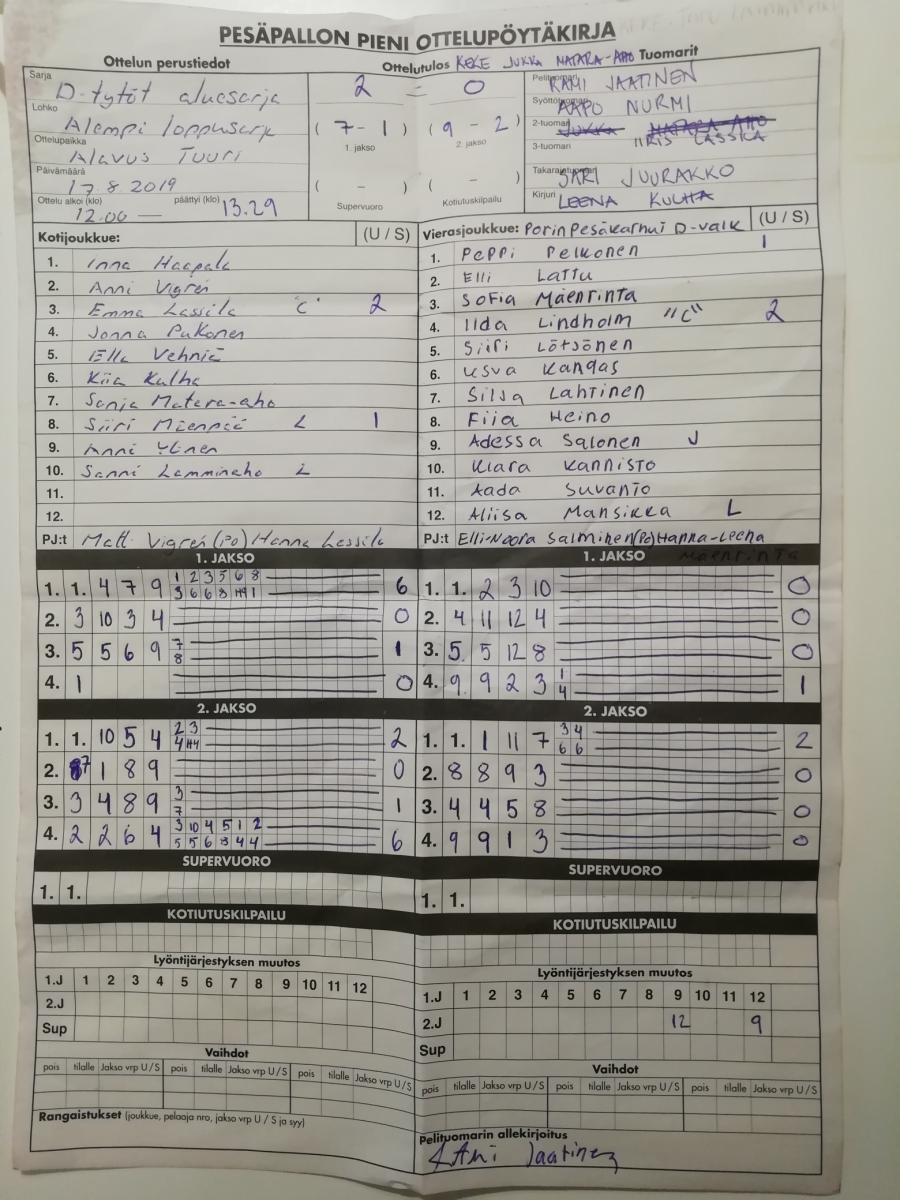 PESÄPALLON PIENI OTTELUPÖYTÄKIRJA
Ottelun perustiedot
Ottelutulos KEKE JUKKA MATARA-AHO Tuomarit
Sarja D-tytöt aluesarja
Lohko Alempi loppusarja
Ottelupaikka Alavus Tuuri
Päivämäärä 17.8 2019
Ottelu alkoi (klo) 12.00 — päättyi (klo) 13.29
2 - 0
( 7 - 1 ) ( 9 - 2 )
1. jakso 2. jakso
( - ) ( - )
Supervuoro Kotiutuskilpailu
Pelituomari RAMI JAATINEN
Syöttötuomari AAPO NURMI
2-tuomari JUKKA MATARA-AHO
3-tuomari IIRIS LASSILA
Takarajatuomari SARI JUURAKKO
Kirjuri LEENA KULHA
Kotijoukkue: (U / S)
1. Inna Haapala
2. Anni Vigren
3. Emma Lassila "C" 2
4. Jonna Pukonen
5. Ella Vehniä
6. Kiia Kulha
7. Sonja Matara-aho
8. Siiri Mäenpää L 1
9. Anni Ylinen
10. Sanni Lamminaho L
11.
12.
PJ:t Matt Vigren (PO) Hanna Lassila
Vierasjoukkue: PorinPesäkarhut D-valk (U / S)
1. Peppi Pelkonen 1
2. Elli Lattu
3. Sofia Mäenrinta
4. Ilda Lindholm "C" 2
5. Siiri Lötjönen
6. Usva Kangas
7. Silja Lahtinen
8. Fiia Heino
9. Adessa Salonen J
10. Klara Kannisto
11. Aada Suvanto
12. Aliisa Mansikka L
PJ:t Elli-Noora Salminen (PO) Hanna-Leena
Mäenrinta
1. JAKSO
1. 1. 4 7 9 1 2 3 5 6 8 6
3 6 6 8 1
2. 3 10 3 4 0
3. 5 5 6 9 7 1
8
4. 1 0
1. JAKSO
1. 1. 2 3 10 0
2. 4 11 12 4 0
3. 5. 5 12 8 0
4. 9. 9 2 3 1 1
4
2. JAKSO
1. 1. 10 5 4 2 3 2
4
2. 7 1 8 9 0
3. 3 4 8 9 3 1
7
4. 2 2 6 4 3 10 4 5 1 2 6
5 5 6 8 4 4
2. JAKSO
1. 1. 1 11 7 3 4 2
6 6
2. 8 8 9 3 0
3. 4 4 5 8 0
4. 9 9 1 3 0
SUPERVUORO
1. 1.
SUPERVUORO
1. 1.
KOTIUTUSKILPAILU
KOTIUTUSKILPAILU
Lyöntijärjestyksen muutos
1.J 1 2 3 4 5 6 7 8 9 10 11 12
2.J
Sup
Lyöntijärjestyksen muutos
1.J 1 2 3 4 5 6 7 8 9 10 11 12
2.J 12 9
Sup
Vaihdot
pois tilalle Jakso vrp U / S pois tilalle Jakso vrp U / S pois tilalle Jakso vrp U / S
Vaihdot
pois tilalle Jakso vrp U / S pois tilalle Jakso vrp U / S pois tilalle Jakso vrp U / S
Rangaistukset (joukkue, pelaaja nro, jakso vrp U / S ja syy)
Pelituomarin allekirjoitus
Rami Jaatinen